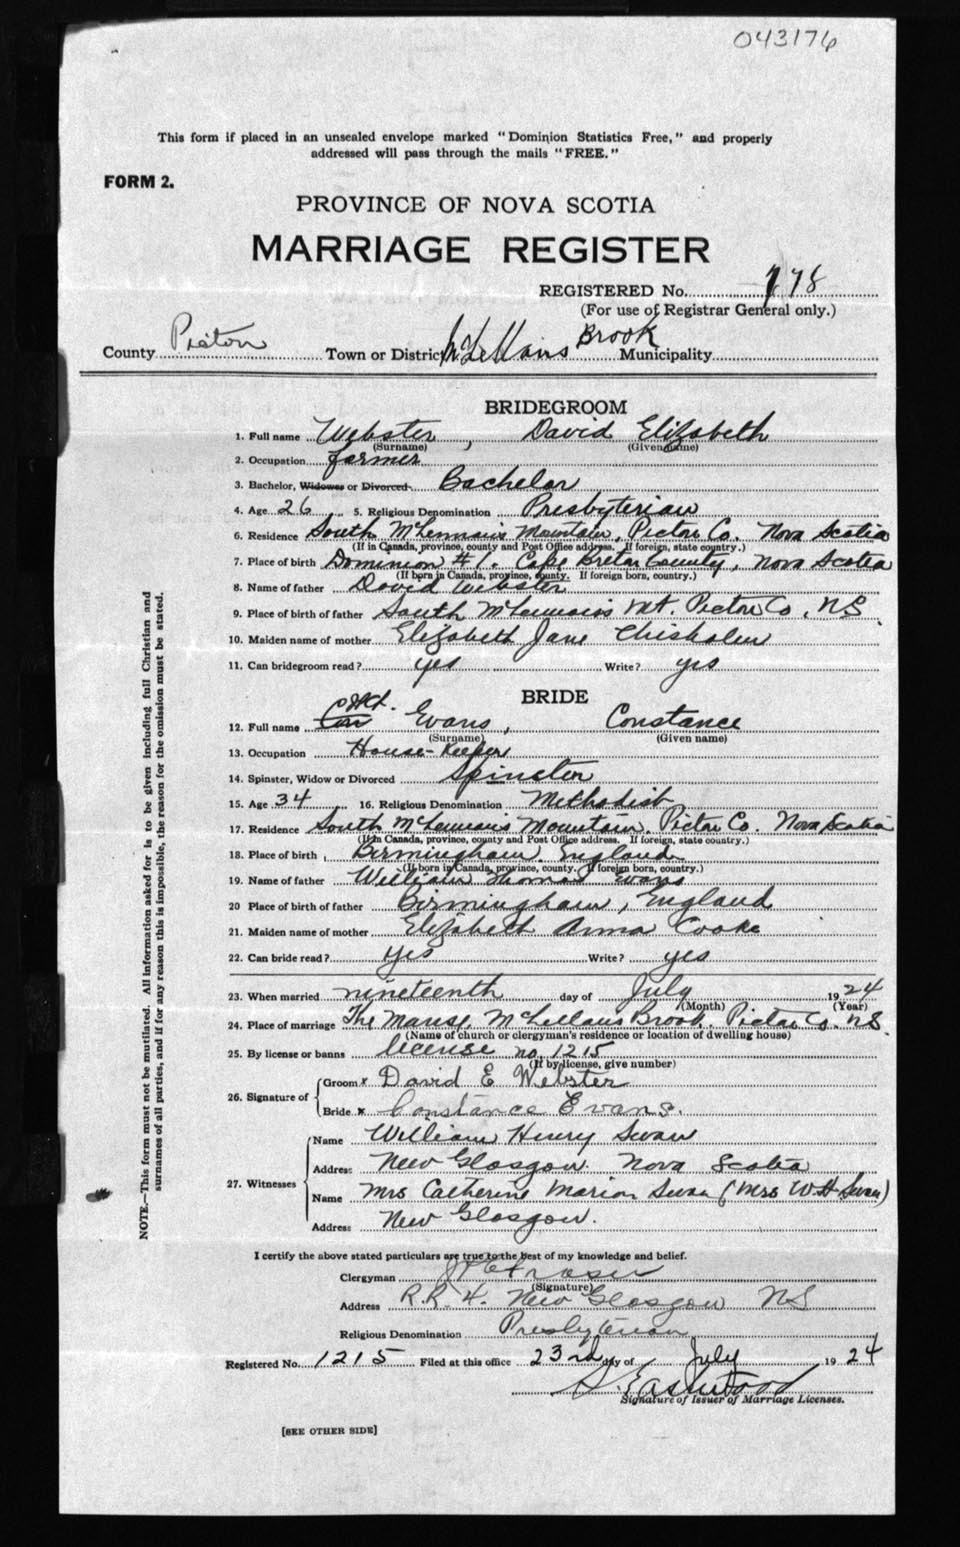 043176
This form if placed in an unsealed envelope marked "Dominion Statistics Free," and properly
addressed will pass through the mails "FREE."
FORM 2.
PROVINCE OF NOVA SCOTIA
MARRIAGE REGISTER
REGISTERED No. 178
(For use of Registrar General only.)
County Pictou Town or District McLellans Brook Municipality
BRIDEGROOM
1. Full name Webster, David Elizabeth
(Surname) (Given name)
2. Occupation farmer
3. Bachelor, Widower or Divorced Bachelor
4. Age 26 5. Religious Denomination Presbyterian
6. Residence South McLennan's Mountain, Pictou Co. Nova Scotia
(If in Canada, province, county and Post Office address. If foreign, state country.)
7. Place of birth Dominion #1. Cape Breton County, Nova Scotia
(If born in Canada, province, county. If foreign born, country.)
8. Name of father David Webster
9. Place of birth of father South McLennan's Mt. Pictou Co, NS.
10. Maiden name of mother Elizabeth Jane Chisholm
11. Can bridegroom read? yes Write? yes
BRIDE
12. Full name Evans, Constance
(Surname) (Given name)
13. Occupation House-Keeper
14. Spinster, Widow or Divorced Spinster
15. Age 34 16. Religious Denomination Methodist
17. Residence South McLennan's Mountain, Pictou Co. Nova Scotia
(If in Canada, province, county and Post Office address. If foreign, state country.)
18. Place of birth Birmingham, England
(If born in Canada, province, county. If foreign born, country.)
19. Name of father William Thomas Evans
20 Place of birth of father Birmingham, England
21. Maiden name of mother Elizabeth Anna Cooke
22. Can bride read? Yes Write? yes
23. When married nineteenth day of July 1924
(Month) (Year)
24. Place of marriage The Manse, McLellans Brook, Pictou Co. N.S.
(Name of church or clergyman's residence or location of dwelling house)
25. By license or banns license no. 1215
(If by license, give number)
26. Signature of Groom x David E Webster
Bride x Constance Evans.
27. Witnesses Name William Henry Swan
Address New Glasgow. Nova Scotia
Name Mrs Catherine Marion Swan (Mrs W.H Swan)
Address New Glasgow.
I certify the above stated particulars are true to the best of my knowledge and belief.
Clergyman Fraser
(Signature)
Address R.R. 4. New Glasgow NS
Religious Denomination Presbyterian
Registered No. 1215 Filed at this office 23rd day of July 1924
S. Eastwood
Signature of Issuer of Marriage Licenses.
[SEE OTHER SIDE]
NOTE.—This form must not be mutilated. All information asked for is to be given including full Christian and
surnames of all parties, and if for any reason this is impossible, the reason for the omission must be stated.